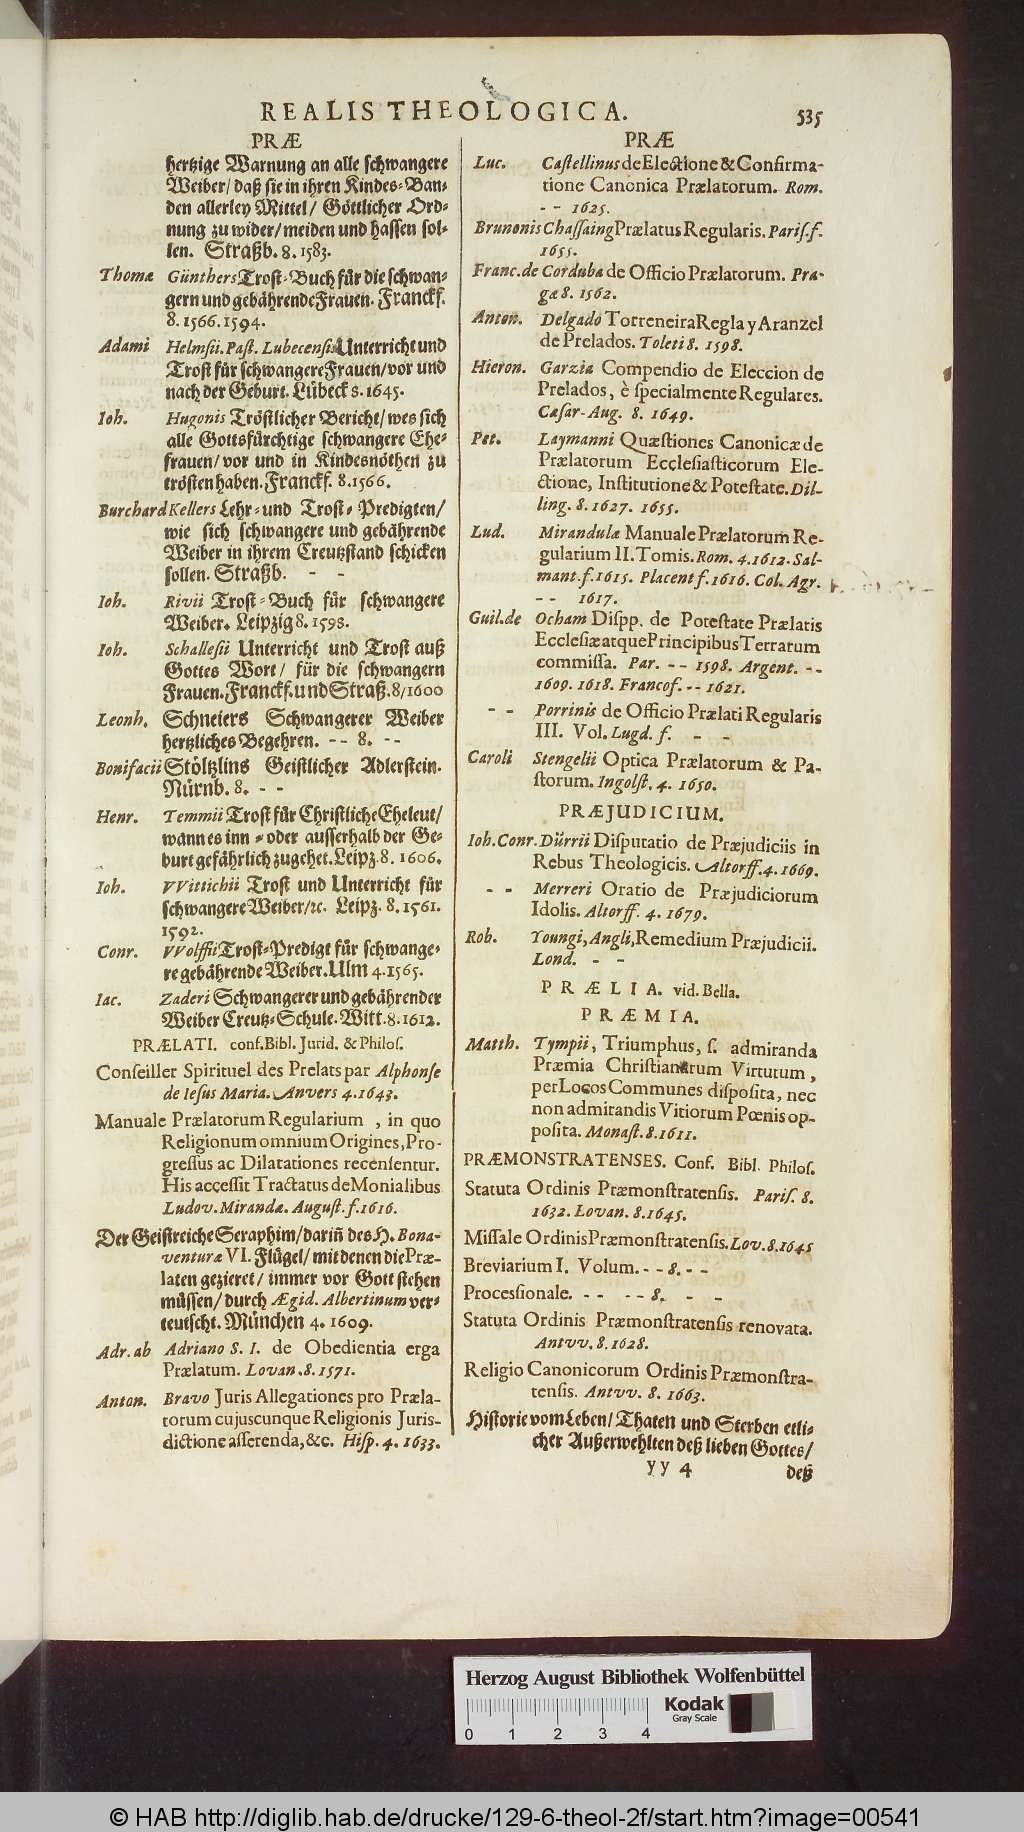 REALIS THEOLOGICA. 535
PRÆ
hertzige Warnung an alle schwangere
Weiber/ daß sie in ihren Kindes-Ban-
den allerley Mittel/ Göttlicher Ord-
nung zu wider/ meiden und hassen sol-
len. Straßb. 8. 1583.
Thomæ Günthers Trost-Buch für die schwan-
gern und gebährende Frauen. Franckf.
8. 1566. 1594.
Adami Helmsii. Past. Lubecensis Unterricht und
Trost für schwangere Frauen/ vor und
nach der Geburt. Lübeck 8. 1645.
Ioh. Hugonis Tröstlicher Bericht/ wes sich
alle Gottsfürchtige schwangere Ehe-
frauen/ vor und in Kindesnöthen zu
trösten haben. Franckf. 8. 1566.
Burchard Kellers Lehr- und Trost-Predigten/
wie sich schwangere und gebährende
Weiber in ihrem Creutzstand schicken
sollen. Straßb. - -
Ioh. Rivii Trost-Buch für schwangere
Weiber. Leipzig 8. 1598.
Ioh. Schallesii Unterricht und Trost auß
Gottes Wort/ für die schwangern
Frauen. Franckf. und Straß. 8/ 1600
Leonh. Schneiers Schwangerer Weiber
hertzliches Begehren. - - 8. - -
Bonifacii Stöltzlins Geistlicher Adlerstein.
Nürnb. 8. - -
Henr. Temmii Trost für Christliche Eheleut/
wann es inn- oder ausserhalb der Ge-
burt gefährlich zugehet. Leipz. 8. 1606.
Ioh. VVittichii Trost und Unterricht für
schwangere Weiber/ ꝛc. Leipz. 8. 1561.
1592.
Conr. VVolffii Trost-Predigt für schwange-
re gebährende Weiber. Ulm 4. 1565.
Iac. Zaderi Schwangerer und gebährender
Weiber Creutz-Schule. Witt. 8. 1612.
PRÆLATI. conf. Bibl. Jurid. & Philos.
Conseiller Spirituel des Prelats par Alphonse
de Iesus Maria. Anvers 4. 1643.
Manuale Prælatorum Regularium , in quo
Religionum omnium Origines, Pro-
gressus ac Dilatationes recensentur.
His accessit Tractatus de Monialibus
Ludov. Miranda. August. f. 1616.
Der Geistreiche Seraphim/ dariñ des H. Bona-
venturæ VI. Flügel/ mit denen die Præ-
laten gezieret/ immer vor Gott stehen
müssen/ durch Ægid. Albertinum ver-
teutscht. München 4. 1609.
Adr. ab Adriano S. I. de Obedientia erga
Prælatum. Lovan. 8. 1571.
Anton. Bravo Juris Allegationes pro Præla-
torum cujuscunque Religionis Juris-
dictione asserenda, &c. Hisp. 4. 1633.
PRÆ
Luc. Castellinus de Electione & Confirma-
tione Canonica Prælatorum. Rom.
- - 1625.
Brunonis Chassaing Prælatus Regularis. Paris. f.
1655.
Franc. de Corduba de Officio Prælatorum. Pra-
gæ 8. 1562.
Anton. Delgado Torreneira Regla y Aranzel
de Prelados. Toleti 8. 1598.
Hieron. Garzia Compendio de Eleccion de
Prelados, è specialmente Regulares.
Cæsar-Aug. 8. 1649.
Pet. Laymanni Quæstiones Canonicæ de
Prælatorum Ecclesiasticorum Ele-
ctione, Institutione & Potestate. Dil-
ling. 8. 1627. 1655.
Lud. Mirandulæ Manuale Prælatorum Re-
gularium II. Tomis. Rom. 4. 1612. Sal-
mant. f. 1615. Placent f. 1616. Col. Agr.
- - 1617.
Guil. de Ocham Dispp. de Potestate Prælatis
Ecclesiæ atque Principibus Terrarum
commissa. Par. - - 1598. Argent. - -
1609. 1618. Francof. - - 1621.
- - Porrinis de Officio Prælati Regularis
III. Vol. Lugd. f. - -
Caroli Stengelii Optica Prælatorum & Pa-
storum. Ingolst. 4. 1650.
PRÆJUDICIUM.
Ioh. Conr. Dürrii Disputatio de Præjudiciis in
Rebus Theologicis. Altorff. 4. 1669.
- - Merreri Oratio de Præjudiciorum
Idolis. Altorff. 4. 1679.
Rob. Youngi, Angli, Remedium Præjudicii.
Lond. - -
PRÆLIA. vid. Bella.
PRÆMIA.
Matth. Tympii, Triumphus, s. admiranda
Præmia Christianarum Virtutum,
per Locos Communes disposita, nec
non admirandis Vitiorum Pœnis op-
posita. Monast. 8. 1611.
PRÆMONSTRATENSES. Conf. Bibl. Philos.
Statuta Ordinis Præmonstratensis. Paris. 8.
1632. Lovan. 8. 1645.
Missale Ordinis Præmonstratensis. Lov. 8. 1645
Breviarium I. Volum. - - 8. - -
Processionale. - - - - 8. - -
Statuta Ordinis Præmonstratensis renovata.
Antvv. 8. 1628.
Religio Canonicorum Ordinis Præmonstra-
tensis. Antvv. 8. 1663.
Historie vom Leben/ Thaten und Sterben etli-
cher Außerwehlten deß lieben Gottes/
yy 4 deß
Herzog August Bibliothek Wolfenbüttel
0 1 2 3 4
Kodak
Gray Scale
© HAB http://diglib.hab.de/drucke/129-6-theol-2f/start.htm?image=00541